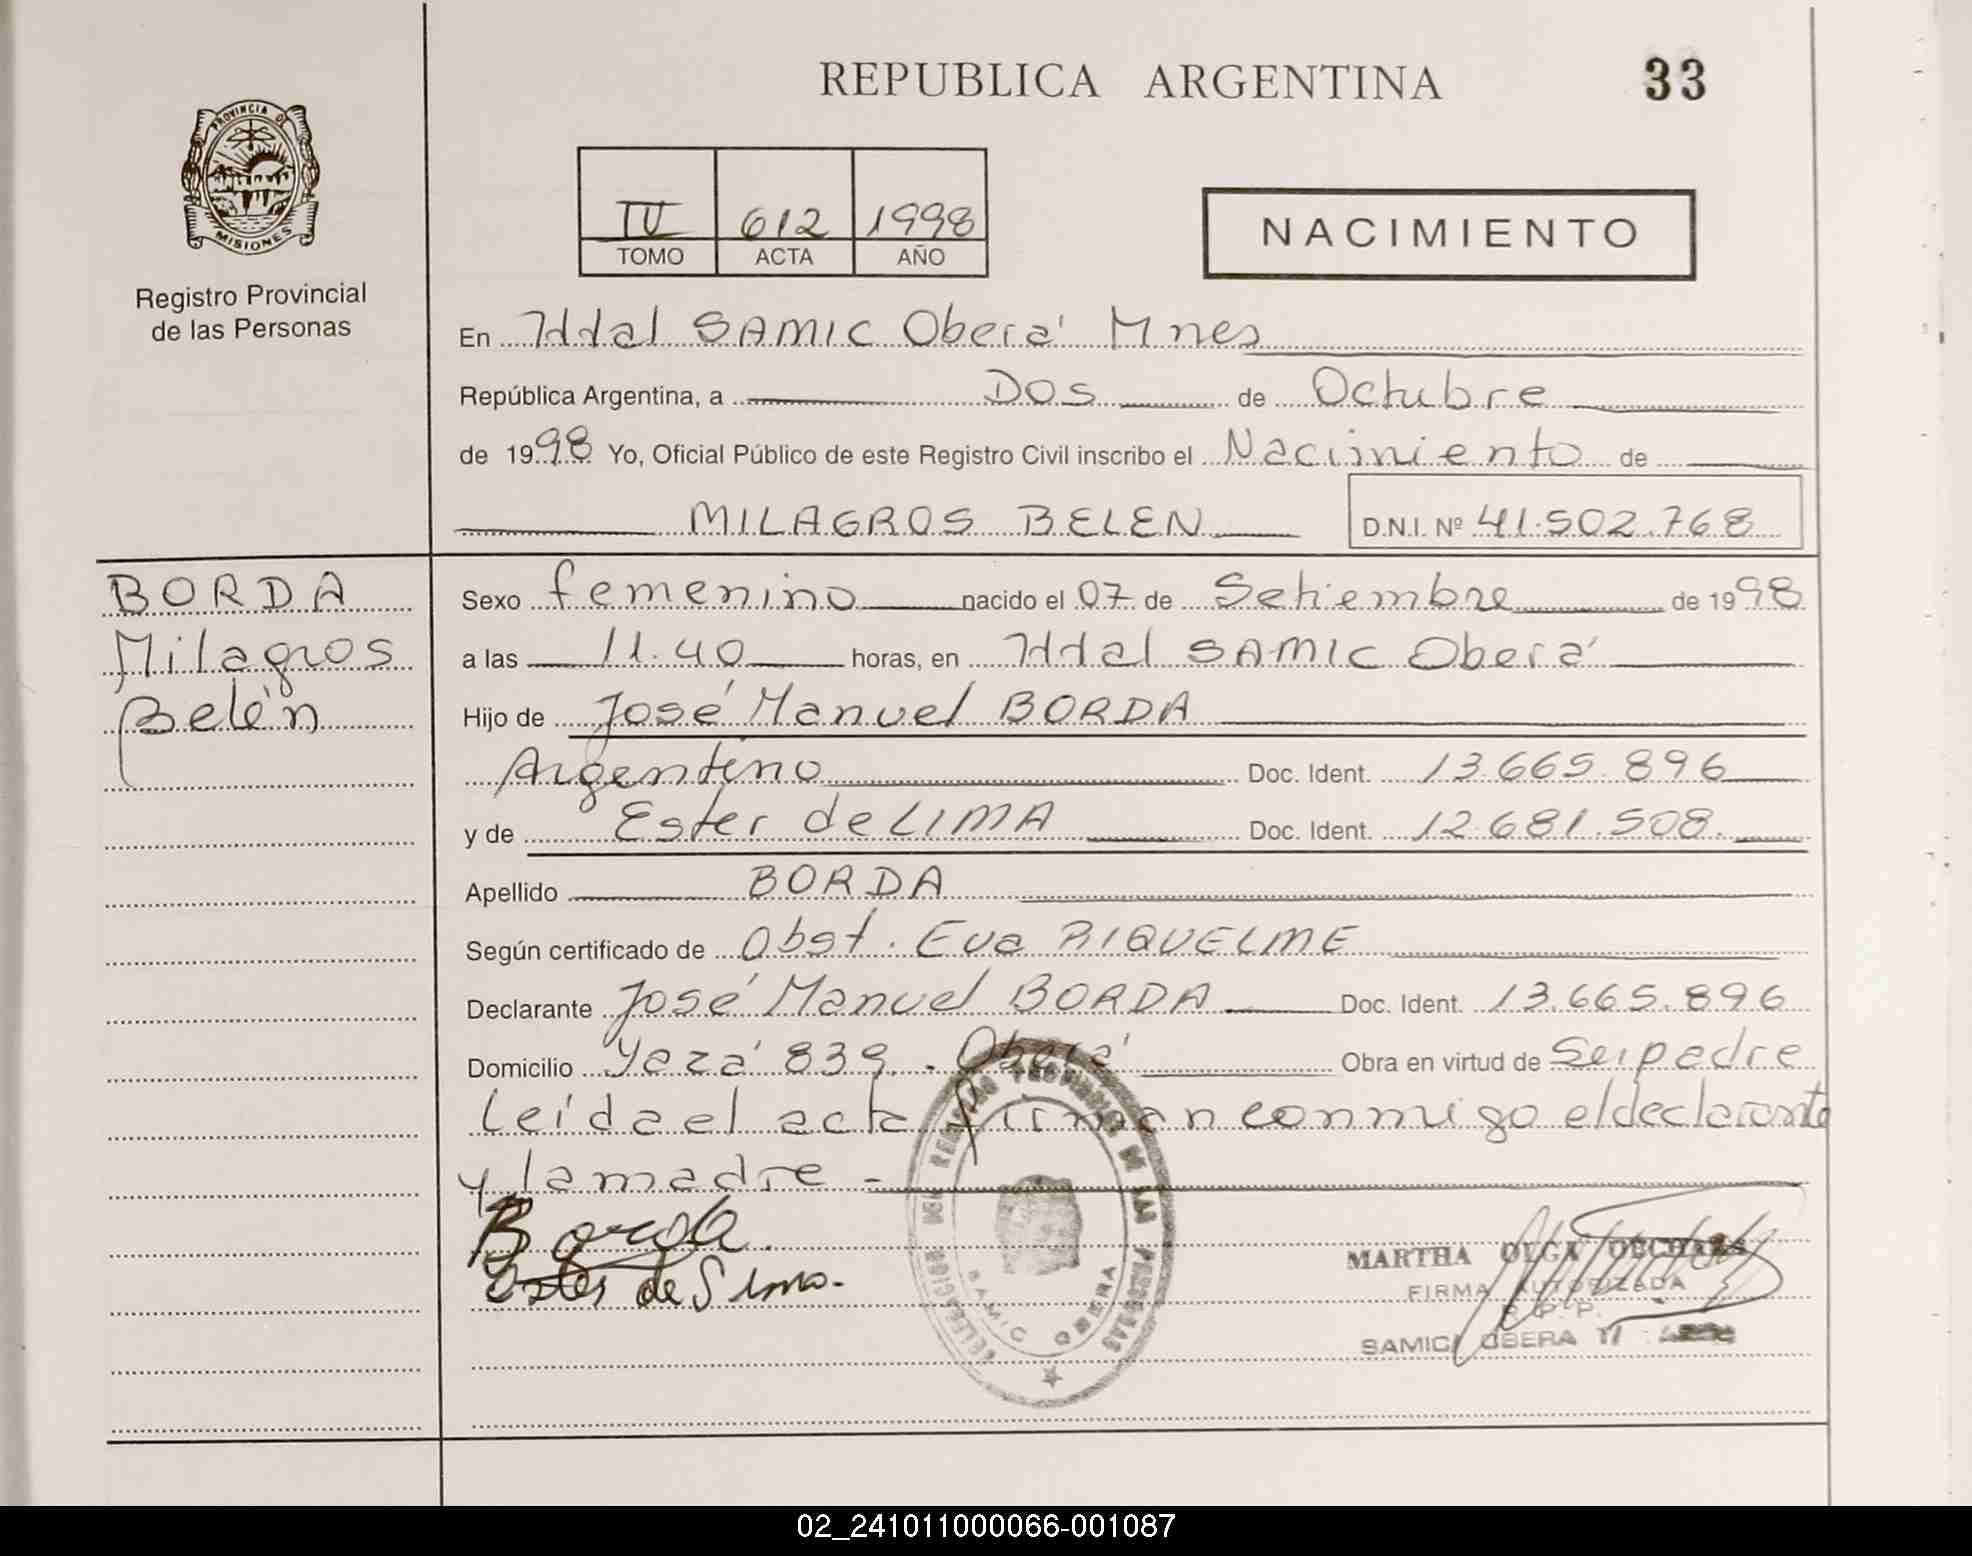 REPUBLICA ARGENTINA
33
PROVINCIA DE
MISIONES
Registro Provincial
de las Personas
IV 612 1998
TOMO ACTA AÑO
NACIMIENTO
En Hdal SAMIC Oberá Mnes
República Argentina, a Dos de Octubre
de 1998 Yo, Oficial Público de este Registro Civil inscribo el Nacimiento de
MILAGROS BELEN D.N.I. Nº 41.502.768
BORDA
Milagros
Belén
Sexo femenino nacido el 07 de Setiembre de 1998
a las 11.40 horas, en Hdal SAMIC Oberá
Hijo de José Manuel BORDA
Argentino Doc. Ident. 13.665.896
y de Ester de LIMA Doc. Ident. 12.681.508.
Apellido BORDA
Según certificado de Obst. Eva RIQUELME
Declarante José Manuel BORDA Doc. Ident. 13.665.896
Domicilio Yazá 839. Oberá Obra en virtud de Ser padre
Leída el acta firman conmigo el declarante
y la madre -
Borda
Ester de Lima.
DELEGACION DEL REGISTRO PROVINCIAL DE LAS PERSONAS
SAMIC OBERA
MARTHA OLGA
FIRMA AUTORIZADA
R. P. P.
SAMIC OBERA
02_241011000066-001087